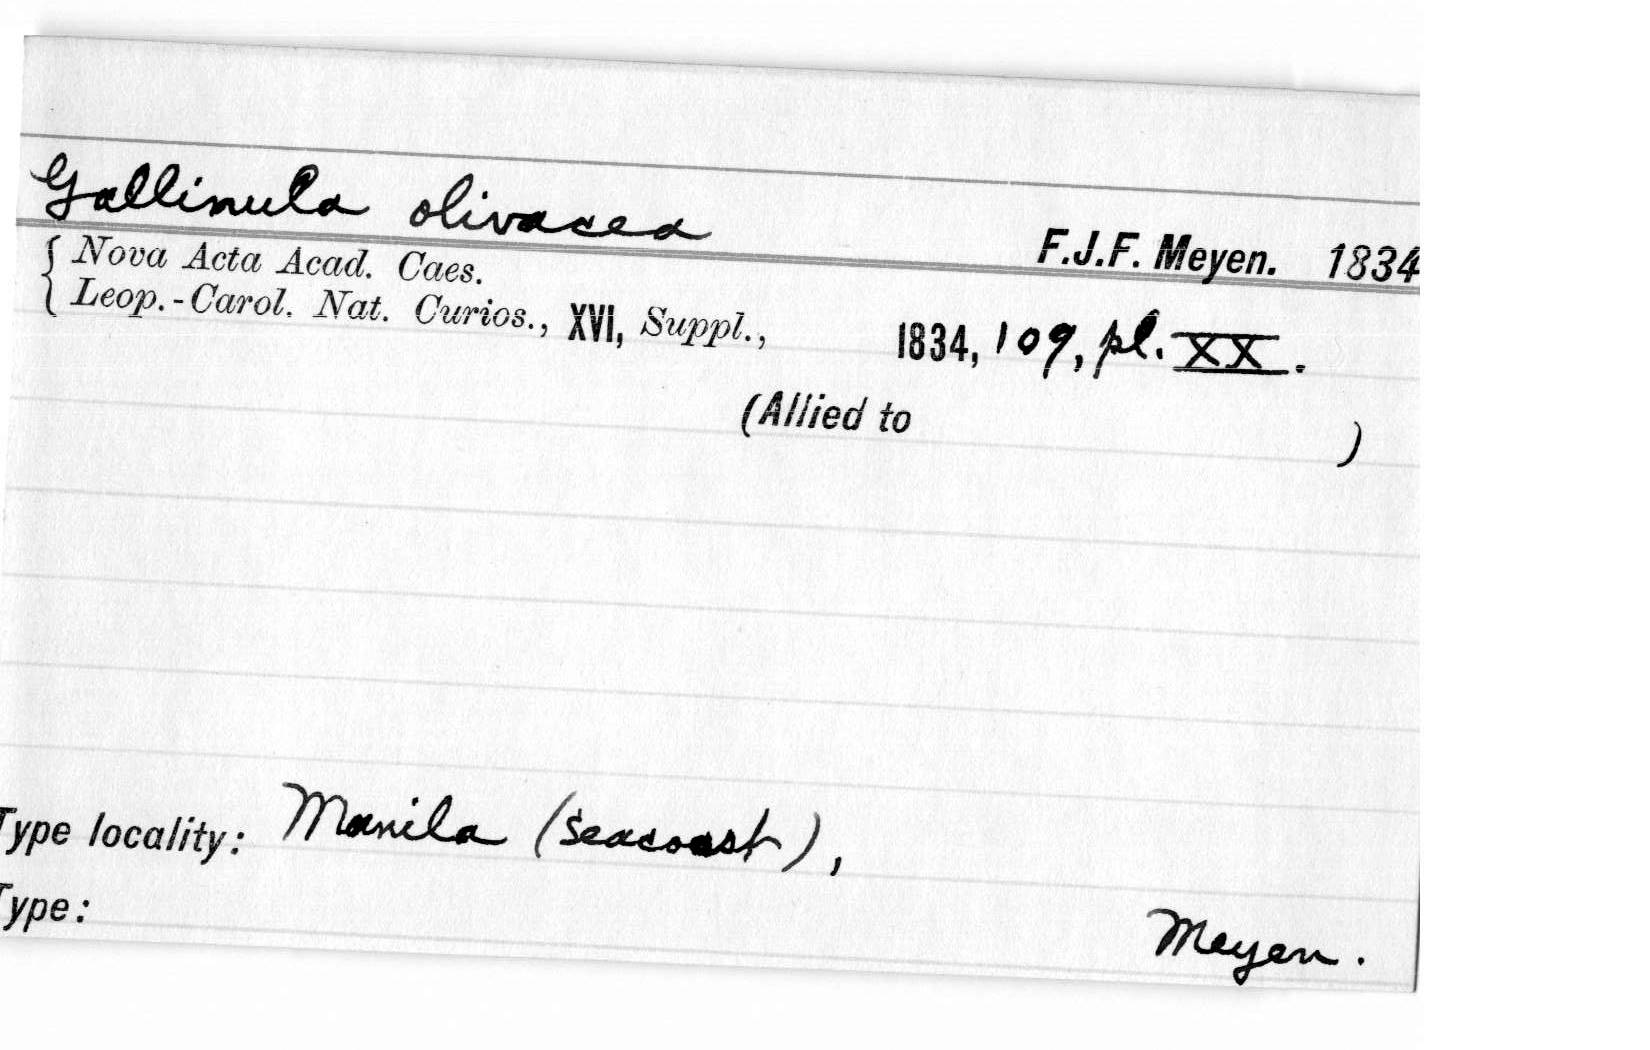 Gallinula olivacea
F.J.F. Meyen. 1834
{ Nova Acta Acad. Caes.
{ Leop.-Carol. Nat. Curios., XVI, Suppl., 1834, 109, pl. XX.
(Allied to )
Type locality: Manila (seacoast),
Type:
Meyen.